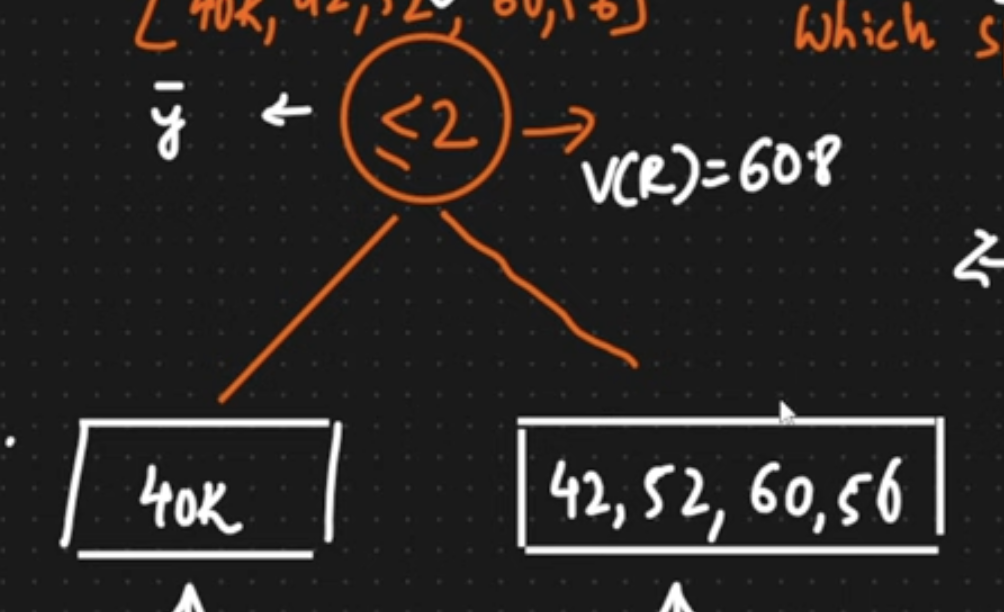 [40K, 42, 52, 60, 56]
Which
ȳ ← ≤2 →
V(R)=60.8
40K
42, 52, 60, 56